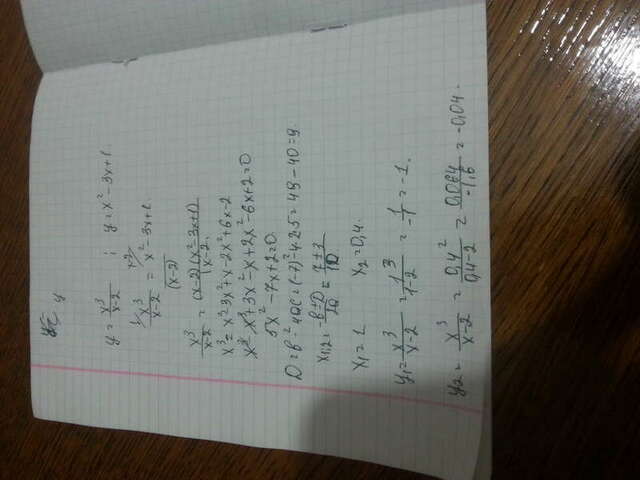 y = x³/x-2 ; y = x² - 3x + 1
x³/x-2 = x² - 3x + 1
(x-2)
x³/x-2 = (x-2)(x² - 3x + 1)/x-2
x³ = x³ - 3x² + x - 2x² + 6x - 2
x³ - x³ + 3x² - x + 2x² - 6x + 2 = 0
5x² - 7x + 2 = 0
D = b² - 4ac = (-7)² - 4·2·5 = 49 - 40 = 9.
x1,2 = -b±D/2a = 7±3/10
x₁ = 1 x₂ = 0,4.
y₁ = x³/x-2 = 1³/1-2 = 1/-1 = -1.
y₂ = x³/x-2 = 0,4²/0,4-2 = 0,064/-1,6 = -0,04.